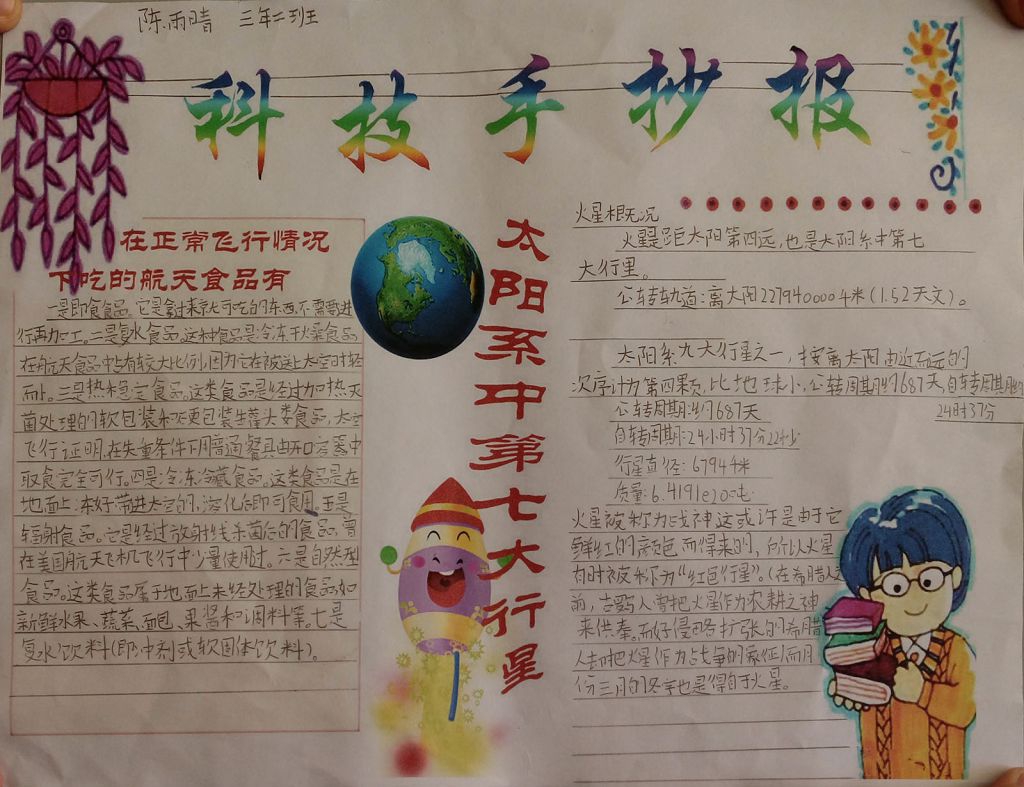 陈雨晴 三年二班
科技手抄报
在正常飞行情况
下吃的航天食品有
一是即食食品。它是拿来就可吃的东西,不需要进
行再加工。二是复水食品。这种食品是冷冻干燥食品
在航天食品中占有较大比例,因为它在被送上太空时轻
而小。三是热稳定食品。这类食品是经过加热灭
菌处理的软包装和硬包装生罐头类食品,太空
飞行证明,在失重条件下用普通餐具由开口容器中
取食完全可行。四是冷冻冷藏食品。这类食品是在
地面上冻好带进太空的,溶化后即可食用。五是
辐射食品。它是经过放射线杀菌后的食品,曾
在美国航天飞机飞行中少量使用过。六是自然型
食品。这类食品属于地面上未经处理的食品如
新鲜水果、蔬菜、面包、果酱和调料等。七是
复水饮料(即冲剂或软固体饮料)。
太阳系中第七大行星
火星概况
火星是距太阳第四远,也是太阳系中第七
大行星。
公转轨道:离太阳227940000千米(1.52天文)。
太阳系九大行星之一,按离太阳由近而远的
次序计为第四颗,比地球小,公转周期约687天,自转周期约
24时37分
公转周期:约687天
自转周期:24小时37分22秒
行星直径:6794千米
质量:6.4191e20吨
火星被称为战神这或许是由于它
鲜红的颜色而得来的,所以火星
有时被称为“红色行星”。(在希腊人之
前,古罗人曾把火星作为农耕之神
来供奉。而好侵略扩张的希腊
人却把火星作为战争的象征)而月
份三月的名字也是得自于火星。